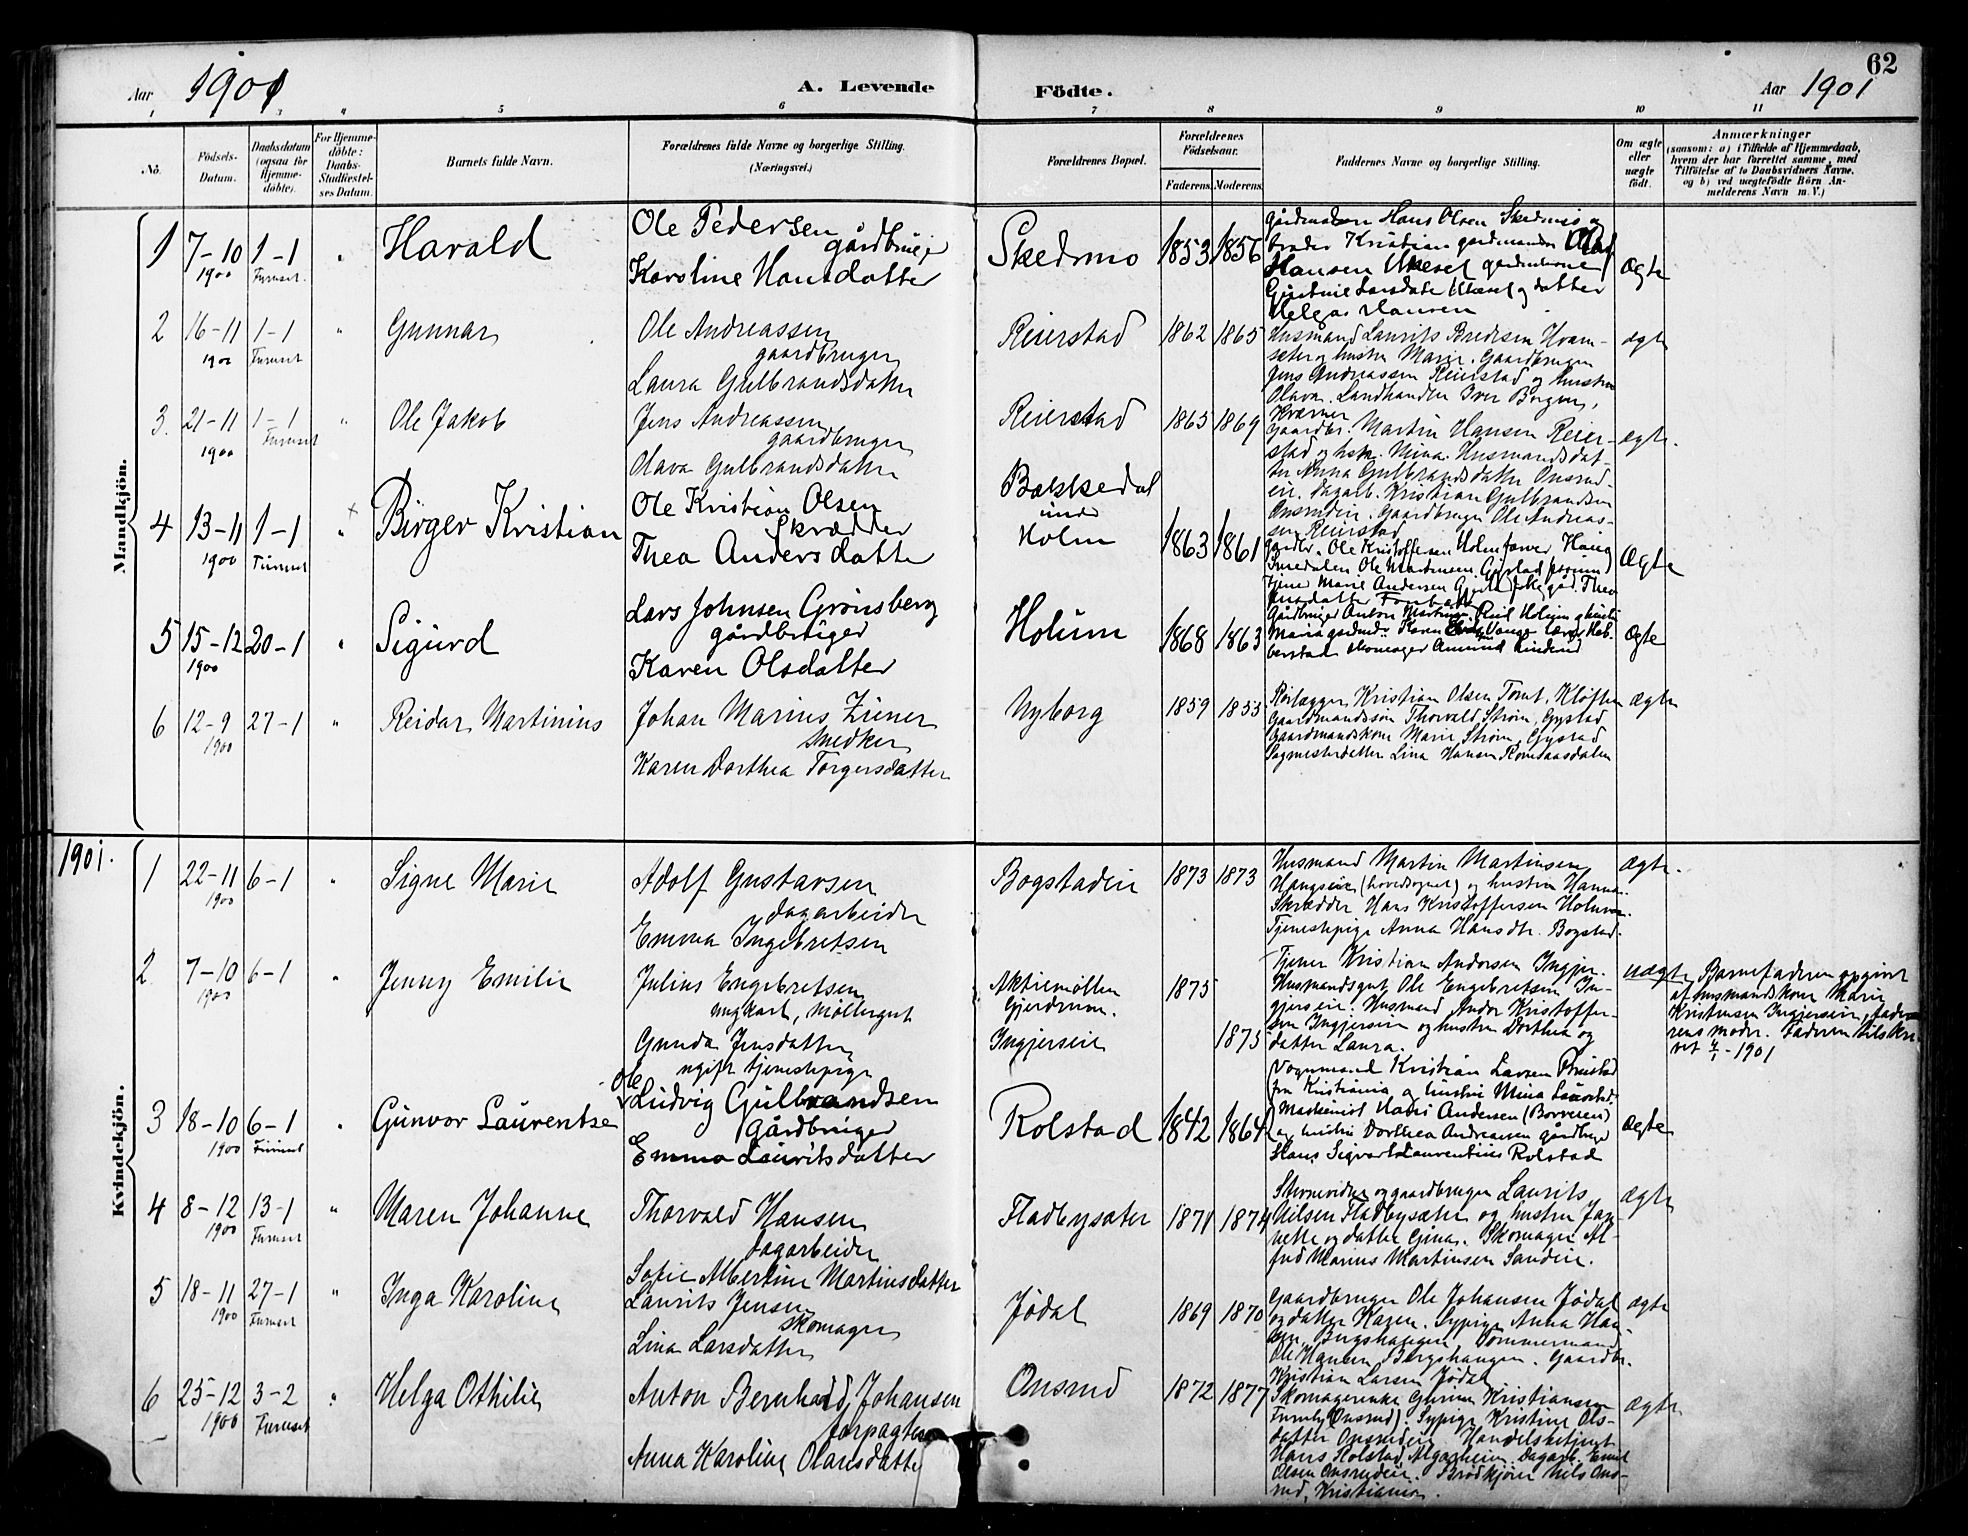 62
Aar 1901
A. Levende Födte.
Aar 1901
1 3 " 5 6 7 8 9 10 11
No.
Födsels-Datum.
Daabsdatum (ogsaa for Hjemmedöbte).
For Hjemmedöbte: Daabs-Stadfæstelses Datum.
Barnets fulde Navn.
Forældrenes fulde Navne og borgerlige Stilling. (Næringsvei.)
Forældrenes Bopæl.
Forældrenes Födselsaar.
Faderens. Moderens.
Faddernes Navne og borgerlige Stilling.
Om ægte eller uægte födt.
Anmærkninger
(saasom: a) i Tilfælde af Hjemmedaab, hvem der har forrettet samme, med Tilföielse af to Daabsvidners Navne, og b) ved uægtefödte Börn Anmelderens Navn m. V.)
Mandkjön.
1 7-10 1900 1-1 Furuset " Harald
Ole Pedersen
gårdbruger
Karoline Hansdatter
Skedsmo 1853 1856
Gårdmanden Hans Olsen Skedsmo og
broder Kristian gårdmanden
Hansen gårdmandskone
Larsdatter og datter
Helga Hansen
Ægte
2 16-11 1900 1-1 Furuset " Gunnar
Ole Andreassen
gaardbruger
Laura Gulbrandsdatter
Reierstad 1862 1865
Husmand Laurits Bredesen Hvam-
sæter og hustru Marie. Gaardbruger
Jens Andreassen Reierstad og hustru
Olava. Landhandler Iver Borgen,
Kværner
ægte
3. 21-11 1900 1-1 Furuset " Ole Jakob
Jens Andreassen
gaardbruger
Olava Gulbrandsdatter
Reierstad 1865 1869
Gaardbr. Martin Hansen Reier-
stad og hstr. Mina. Husmandsdat-
ter Anna Gulbrandsdatter Onsrud-
eie. Dagarb. Kristian Gulbrandsen
Onsrudeie. Gaardbruger Ole Andreas-
sen Reierstad
ægte.
4 13-11 1900 1-1 Furuset " Birger Kristian
Ole Kristian Olsen
Skrædder
Thea Andersdatter
Bakkedal
under
Holm
1863 1861
Ole Kristoffersen Holm
Ole Martinsen Gystad
Marie Andersen
Ægte
5 15-12 1900 20-1 " Sigurd
Lars Johnsen Grönsberg
gårdbruger
Karen Olsdatter
Holum 1868 1863
Gårdbruger Anton Holum
Maria Karen
Skomager Amund
Ægte
6 12-9 1900 27-1 " Reidar Martinius
Johan Marius Ziener
snedker
Karen Dorthea Torgersdatter
Nyborg 1859 1855
Rørlægger Kristian Olsen Tomt, Kløften
Gaardmandssøn Thorvald Strøm, Gystad
Gaardmandskone Marie Strøm, Gystad
Sagmesterdatter Lina Hansen Romedaasdalen
ægte
1901.
Kvindekjön.
1 22-11 1900 6-1 " Signe Marie
Adolf Gustavsen
dagarbeider
Emma Ingebretsen
Bogstadeie 1873 1873
Husmand Martin Martinsen
Haugseie (hovedsognet) og hustru Hanna.
Skrædder Hans Kristoffersen
Tjenestepige Anna Hansdtr. Bogstad.
ægte.
2. 7-10 1900 6-1 " Jenny Emilie
Julius Engebretsen
ungkarl, møllergut
Gunda Jensdatter
ugift tjenestepige
Aktiemøllen
Gjerdrum.
Ingjerseie
1875 1875
Tjener Kristian Andersen Ingjer.
Husmandsgut Ole Engebretsen In-
gjerseie. Husmand Andor Kristoffer-
sen Ingjerseie og hustru Dorthea og
datter Laura.
uægte
Barnefaderen opgivet
af husmandskone Marie
Kristensen Ingjerseie, fade-
rens moder. Faderen tilskre-
vet 4/1-1901
3 18-10 1900 6-1 Furuset " Gunvor Laurentse
Ole
Ludvig Gulbrandsen
Gårdbruger
Emma Lauritsdatter
Rolstad 1842 1864
Vognmand Kristian Larsen
fra Kristiania og hustru Mina
Maskinist Hans Andersen (Borreven)
og hustru Dorthea Andreassen gårdbruger
Hans Sigvart Laurentius Rolstad
ægte
4 8-12 1900 13-1 Furuset " Maren Johanne
Thorvald Hansen
dagarbeider
Sofie Albertine Martinsdatter
Fladbysæter 1871 1874
Stevnevidne og gaardbruger Laurits
Nilsen Fladbysæter og hustru Jan-
nette og datter Gina. Skomager Al-
fred Marius Martinsen Sandeie.
ægte
5 18-11 1900 27-1 Furuset " Inga Karoline
Laurits Jensen
skomager
Lina Larsdatter
Jødal 1869 1870
Gaardbruger Ole Johansen Jødal
og datter Karen. Sypige Anna Han-
sen Bergshaugen. Tømmermand
Ole Hansen Bergshaugen. Gaardbr.
Kristian Larsen Jødal
ægte
6 25-12 1900 3-2 Furuset " Helga Othilie
Anton Bernhard Johansen
forpagter
Anna Karoline Olausdatter
Onsrud 1872 1877
Skomagerenke Gurine Kristiansen
Furuly (Onsrud). Sypige Kristine Ols-
datter Onsrudeie. Handelsbetjent
Hans Rolstad, Algarheim. Dagarb. Emil
Olsen Onsrudeie. Brødkjører Nils Ons-
rud, Kristiania.
ægte